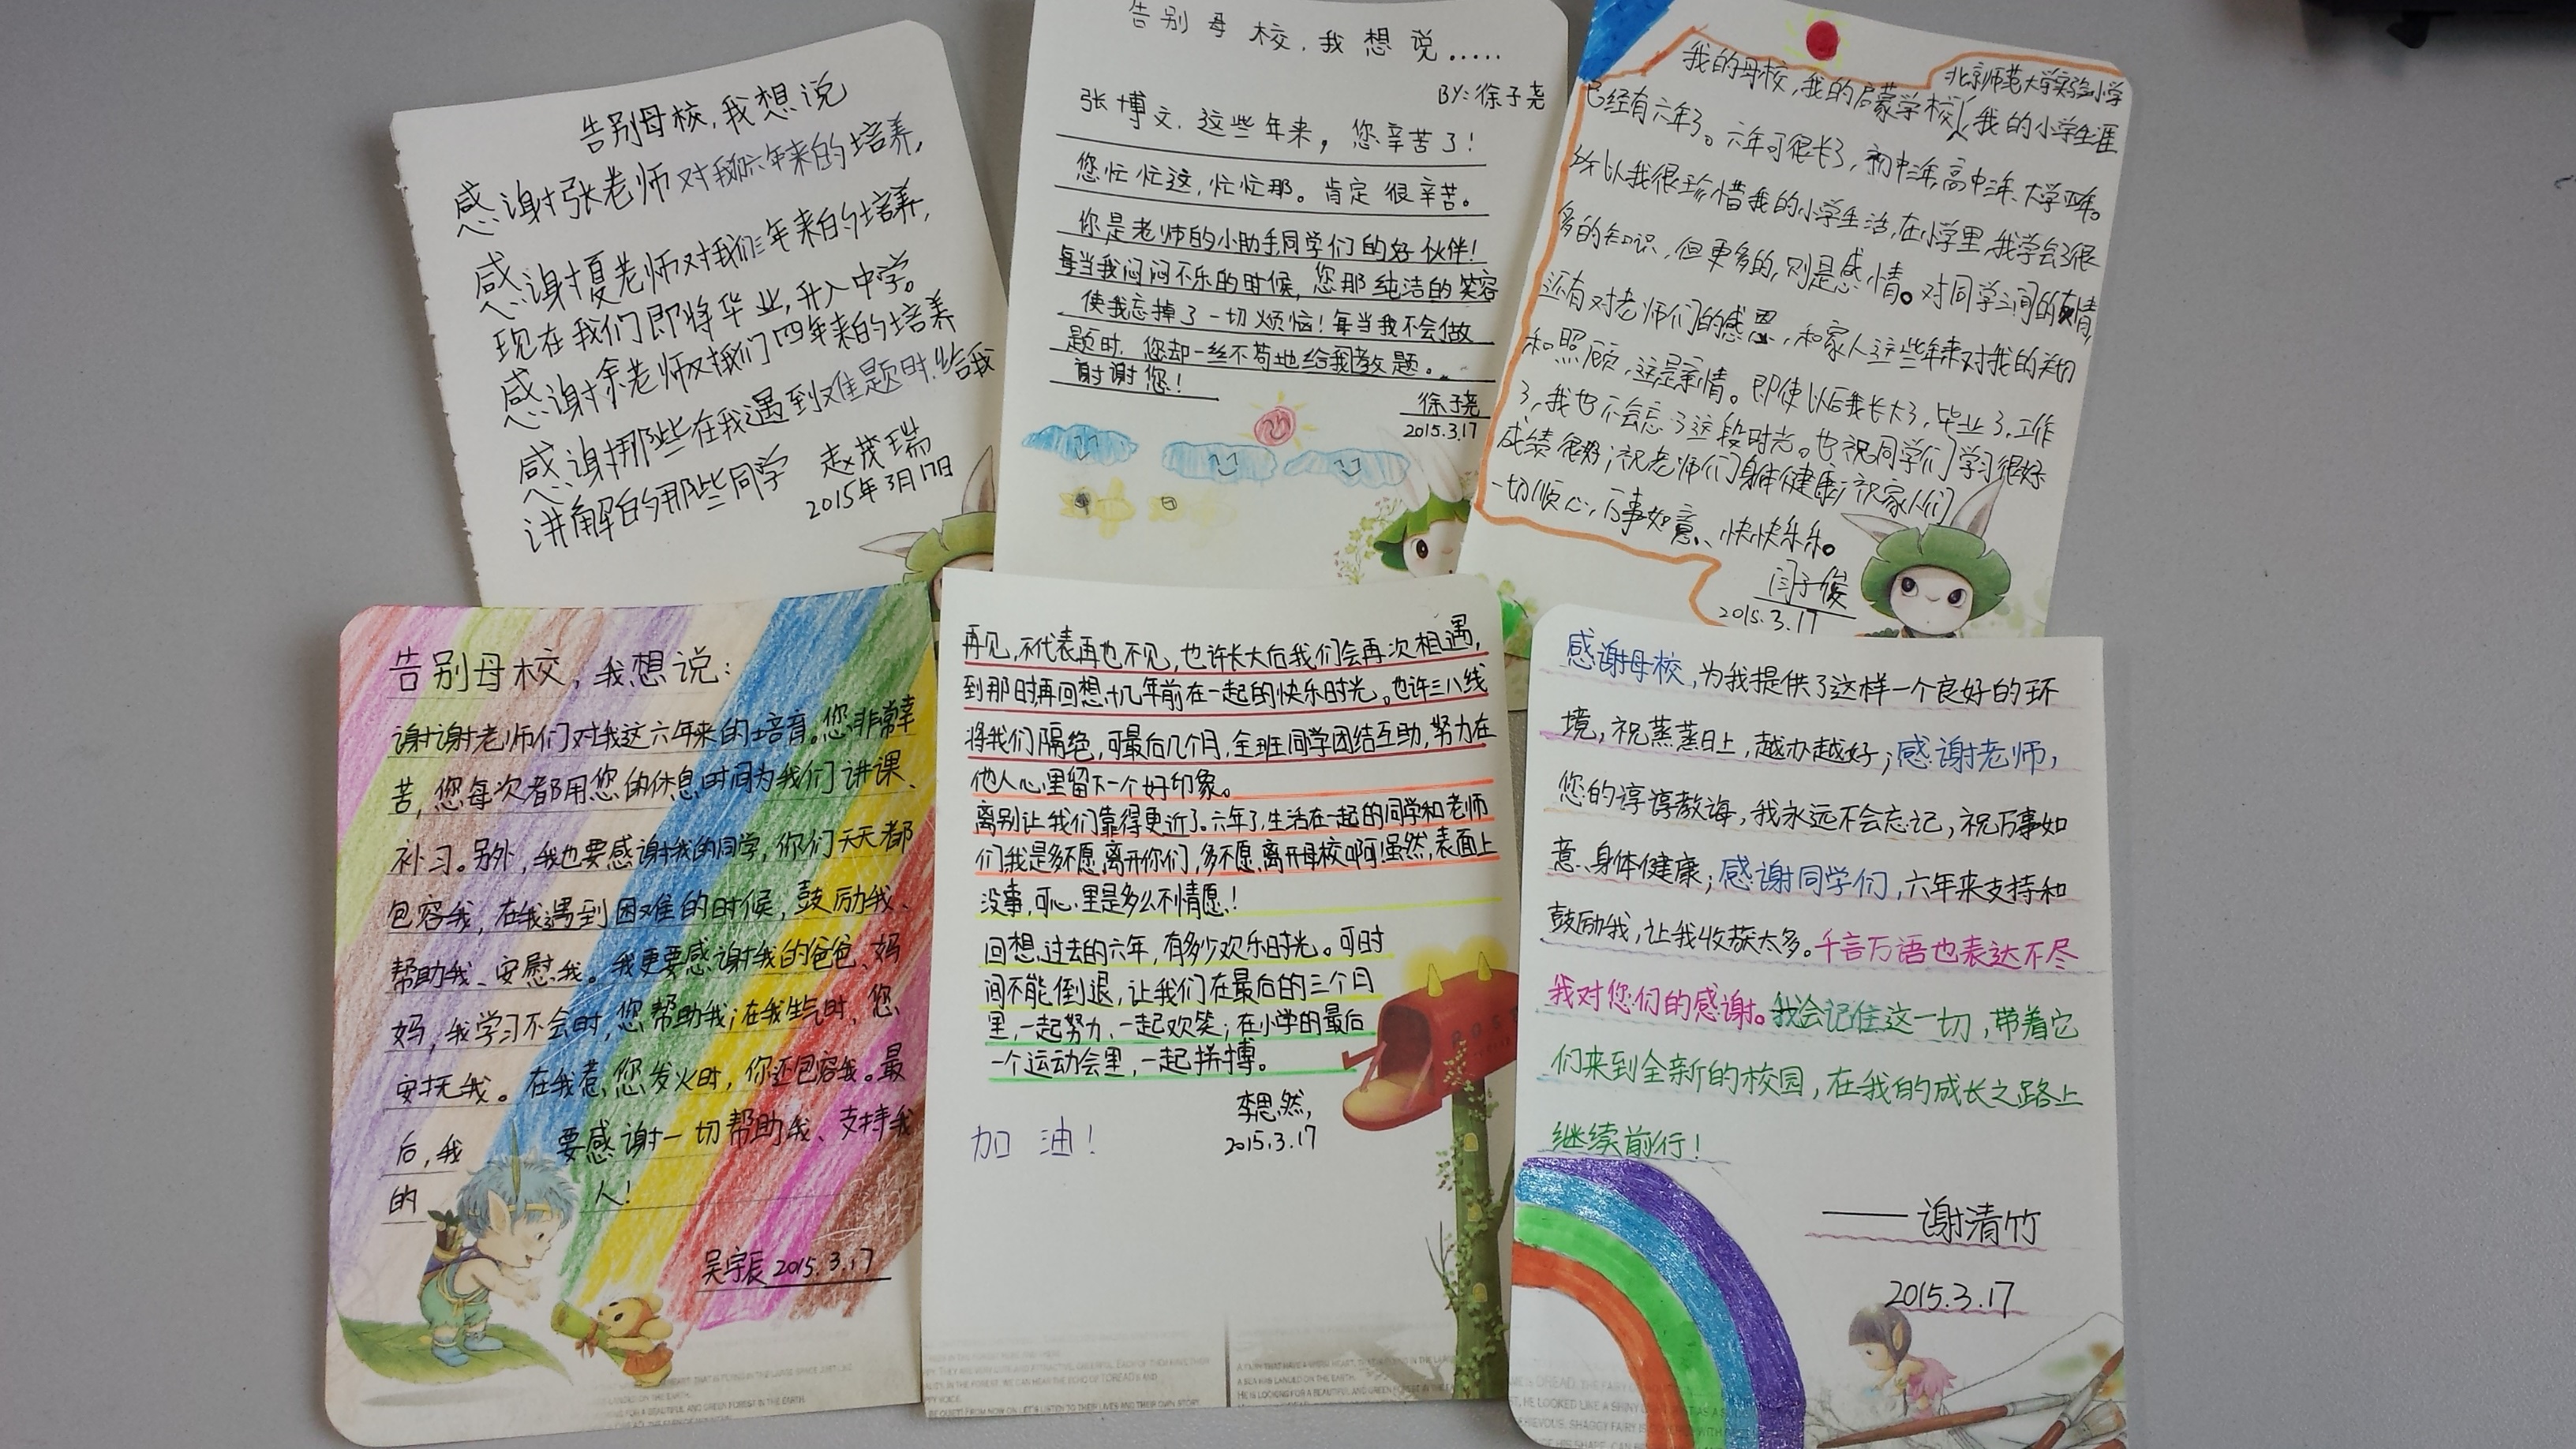 告别母校,我想说
感谢张老师对我们六年来的培养,
感谢夏老师对我们三年来的培养,
现在我们即将毕业,升入中学。
感谢余老师对我们四年来的培养
感谢那些在我遇到难题时给我
讲解的那些同学
赵茂瑞
2015年3月17日
告别母校,我想说.....
BY:徐子尧
张博文,这些年来,您辛苦了!
您忙忙这,忙忙那。肯定很辛苦。
你是老师的小助手,同学们的好伙伴!
每当我闷闷不乐的时候,您那纯洁的笑容
使我忘掉了一切烦恼!每当我不会做
题时,您却一丝不苟地给我教题。
谢谢您!
徐子尧
2015.3.17
北京师范大学实验小学
我的母校,我的启蒙学校,我的小学生涯
已经有六年了。六年可很长了,初中三年,高中三年、大学四年。
所以我很珍惜我的小学生活,在小学里,我学会了很
多的知识,但更多的,则是感情。对同学之间的友情,
还有对老师们的感恩,和家人这些年来对我的关切
和照顾,这是亲情。即使以后我长大了,毕业了,工作
了,我也不会忘了这段时光。也祝同学们学习很好
成绩很好;祝老师们身体健康;祝家人们
一切顺心,万事如意、快快乐乐。
闫子俊
2015.3.17
告别母校,我想说:
谢谢老师们对我这六年来的培育。您非常辛
苦,您每次都用您的休息时间为我们讲课、
补习。另外,我也要感谢我的同学,你们天天都
包容我,在我遇到困难的时候,鼓励我、
帮助我、安慰我。我更要感谢我的爸爸、妈
妈,我学习不会时,您帮助我;在我生气时,您
安抚我。在我惹您发火时,你还包容我。最
后,我要感谢一切帮助我、支持我
的人!
吴宇辰 2015.3.17
再见,不代表再也不见,也许长大后我们会再次相遇,
到那时再回想十几年前在一起的快乐时光。也许三八线
将我们隔绝,可最后几个月,全班同学团结互助,努力在
他人心里留下一个好印象。
离别让我们靠得更近了。六年了,生活在一起的同学和老师
们我是多不愿离开你们,多不愿离开母校啊!虽然,表面上
没事,可心里是多么不情愿!
回想过去的六年,有多少欢乐时光。可时
间不能倒退,让我们在最后的三个月
里,一起努力、一起欢笑;在小学的最后
一个运动会里,一起拼搏。
李思然,
2015.3.17
加油!
感谢母校,为我提供了这样一个良好的环
境,祝蒸蒸日上,越办越好;感谢老师,
您的谆谆教诲,我永远不会忘记,祝万事如
意、身体健康;感谢同学们,六年来支持和
鼓励我,让我收获太多。千言万语也表达不尽
我对您们的感谢。我会记住这一切,带着它
们来到全新的校园,在我的成长之路上
继续前行!
——谢清竹
2015.3.17